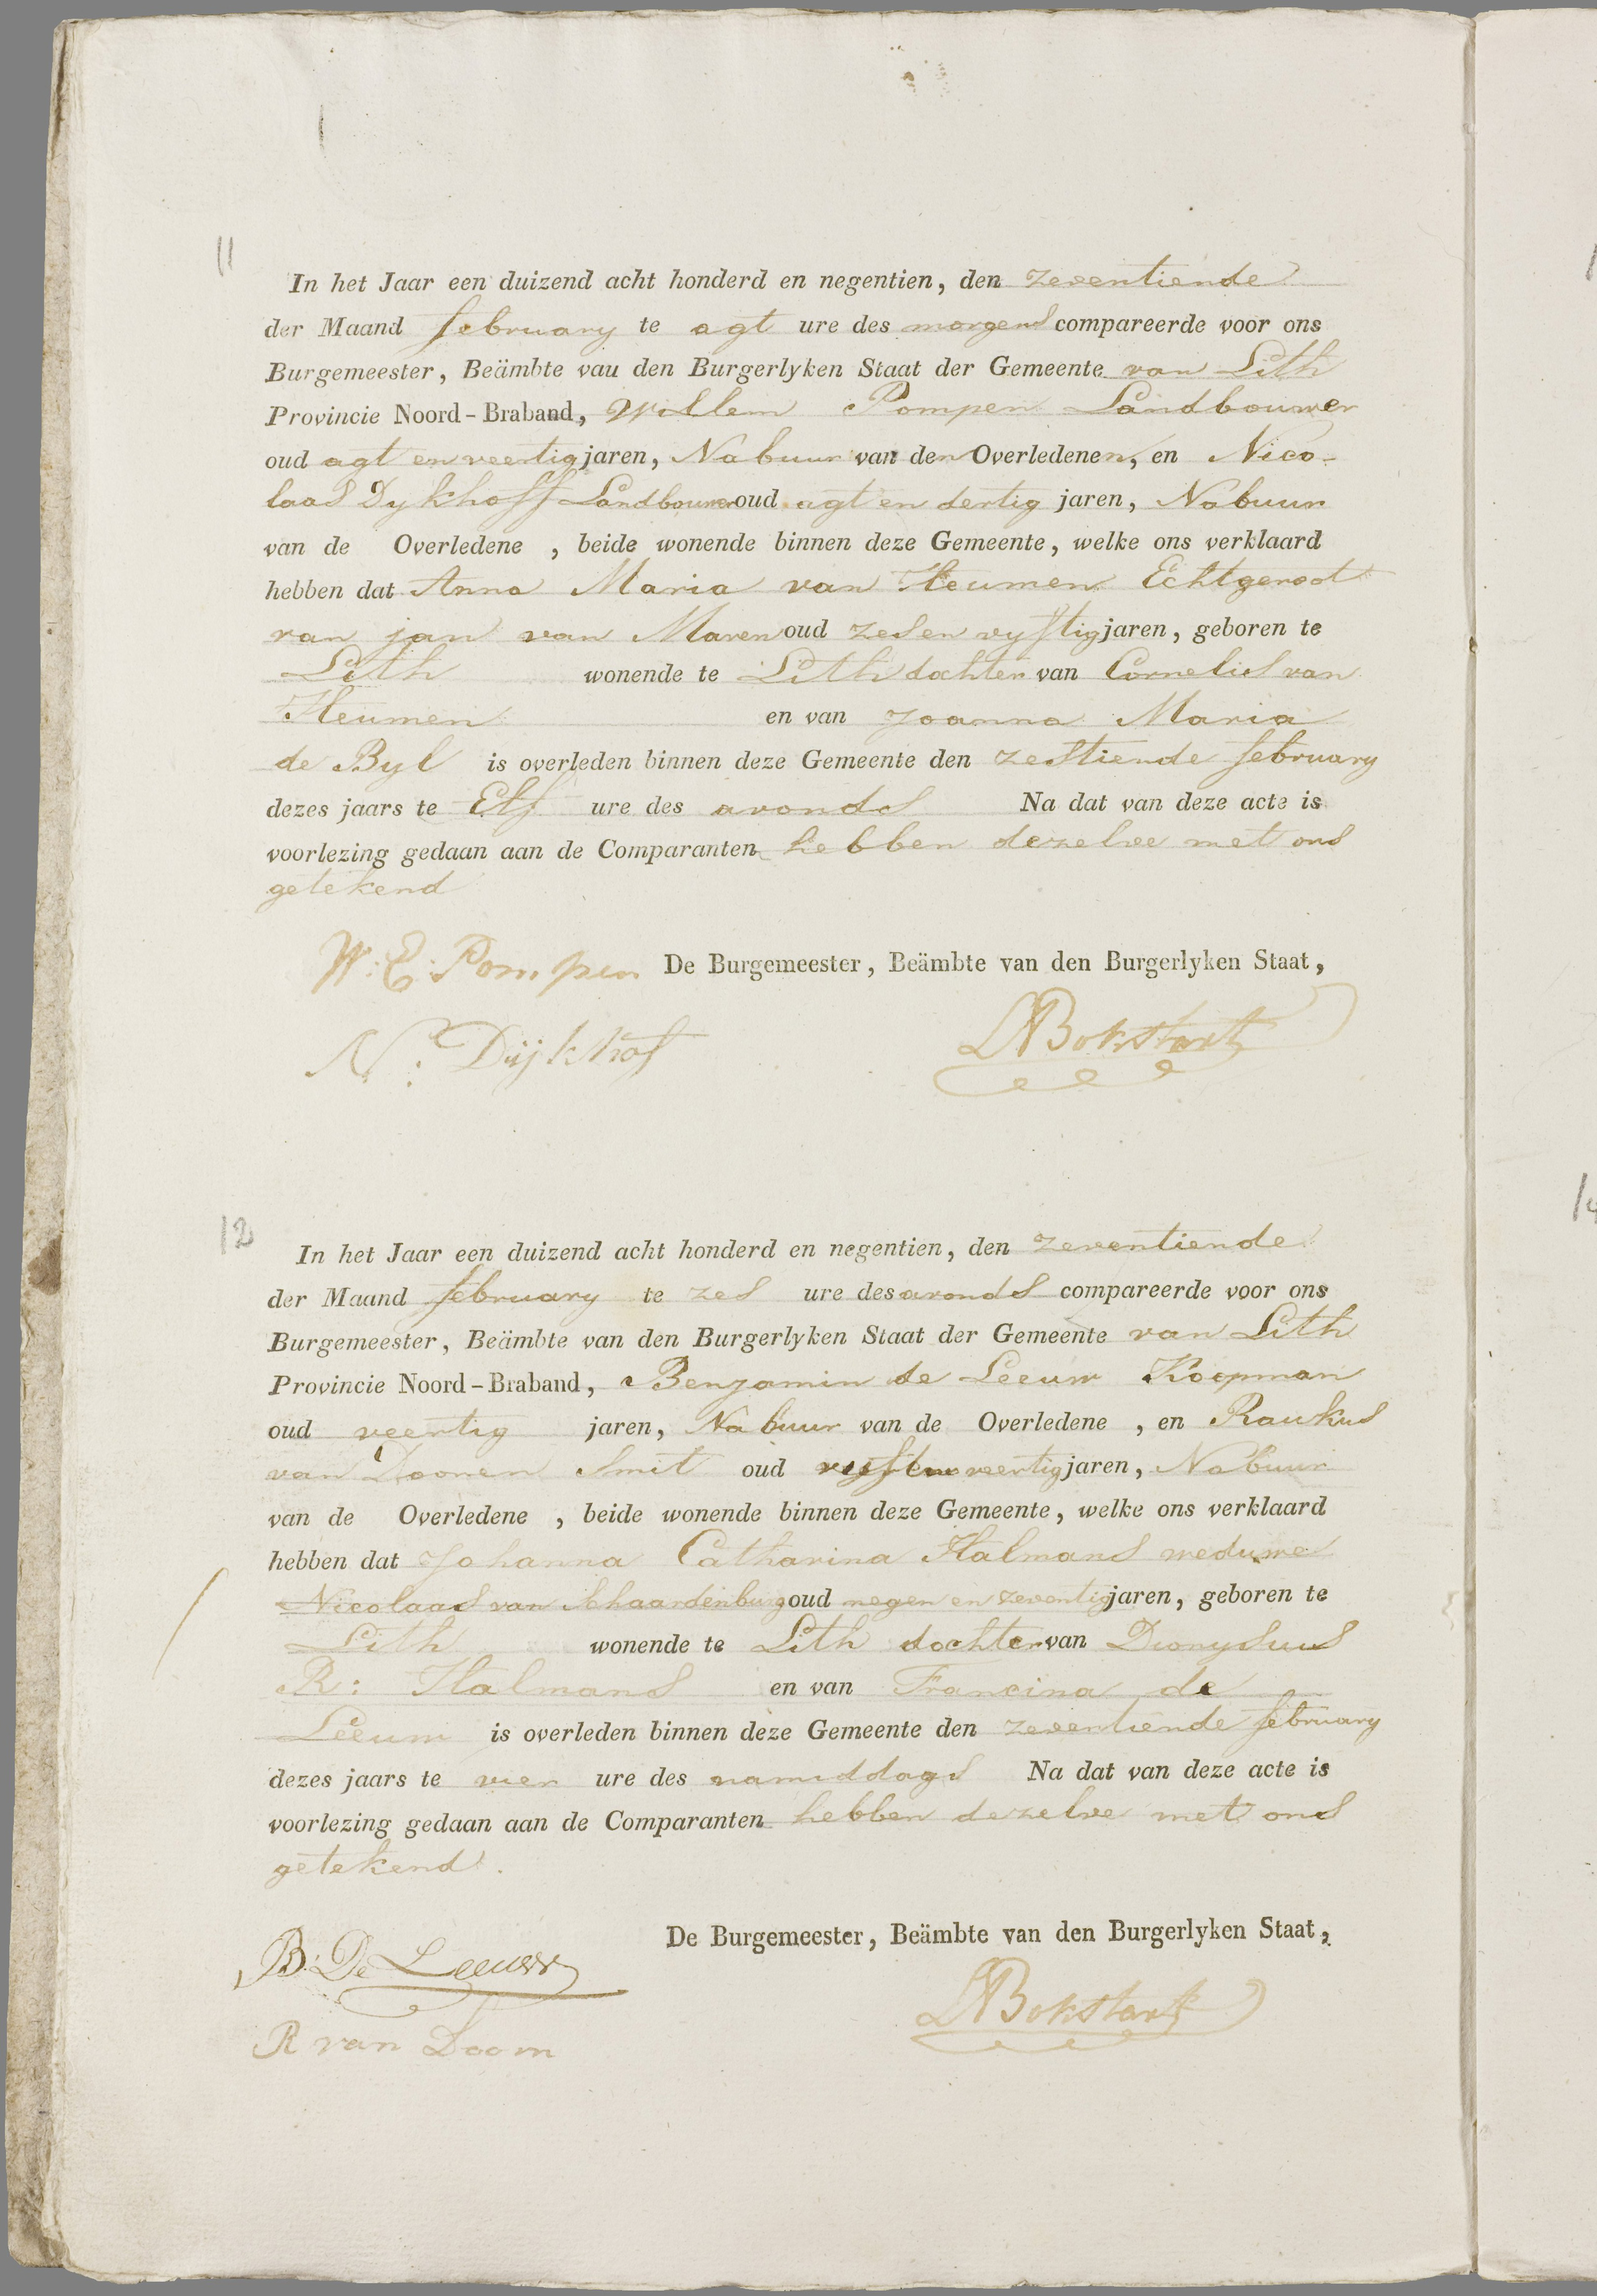 11
In het Jaar een duizend acht honderd en negentien, den zeventiende
der Maand february te agt ure des morgens compareerde voor ons
Burgemeester, Beämbte vau den Burgerlyken Staat der Gemeente van Lith
Provincie Noord-Braband, Willem Pompen Landbouwer
oud agt en veertig jaren, Nabuur van den Overledenen, en Nico-
laas Dykhoff Landbouwer oud agt en dertig jaren, Nabuur
van de Overledene , beide wonende binnen deze Gemeente, welke ons verklaard
hebben dat Anna Maria van Heumen Echtgenoot
van jan van Maren oud zes en vyftig jaren, geboren te
Lith wonende te Lith dochter van Cornelis van
Heumen en van Joanna Maria
de Byl is overleden binnen deze Gemeente den zestiende february
dezes jaars te Elf ure des avonds Na dat van deze acte is
voorlezing gedaan aan de Comparanten hebben dezelve met ons
getekend
W: E: Pompen De Burgemeester, Beämbte van den Burgerlyken Staat,
N: Dijkhof
12
In het Jaar een duizend acht honderd en negentien, den zeventiende
der Maand february te zes ure des avonds compareerde voor ons
Burgemeester, Beämbte van den Burgerlyken Staat der Gemeente van Lith
Provincie Noord-Braband, Benjamin de Leeuw Koopman
oud veertig jaren, Nabuur van de Overledene , en Raukus
van Doonen Smit oud vyf en veertig jaren, Nabuur
van de Overledene , beide wonende binnen deze Gemeente, welke ons verklaard
hebben dat Johanna Catharina Halmans weduwe
Nicolaas van Schaardenburg oud negen en zeventig jaren, geboren te
Lith wonende te Lith dochter van Dionysius
R: Halmans en van Francina de
Leeuw is overleden binnen deze Gemeente den zeventiende february
dezes jaars te vier ure des namiddags Na dat van deze acte is
voorlezing gedaan aan de Comparanten hebben dezelve met ons
getekend.
De Burgemeester, Beämbte van den Burgerlyken Staat,
B: De Leeuw
R van Doorn